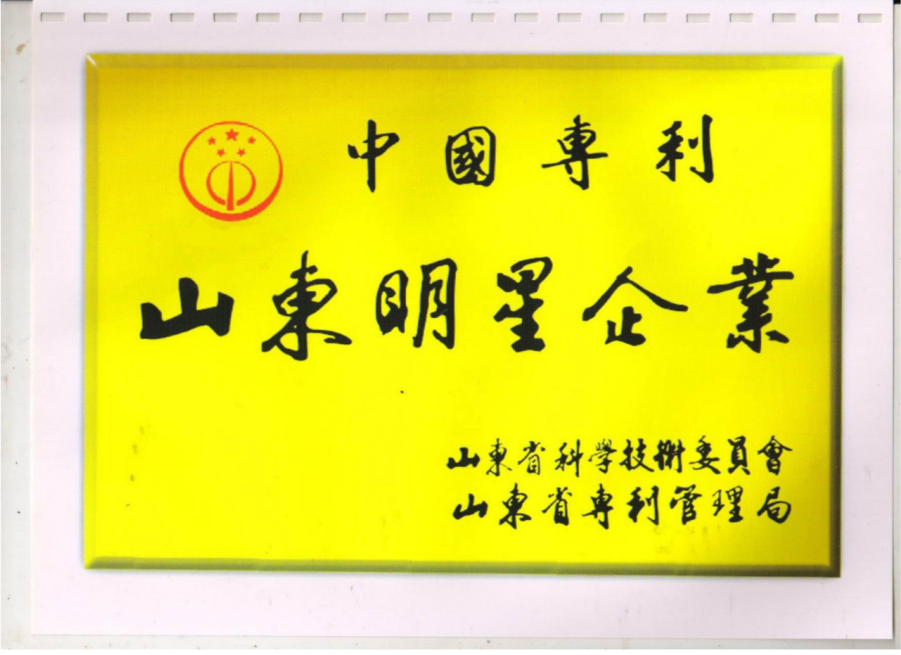 中國專利
山東明星企業
山東省科學技術委員會
山東省專利管理局